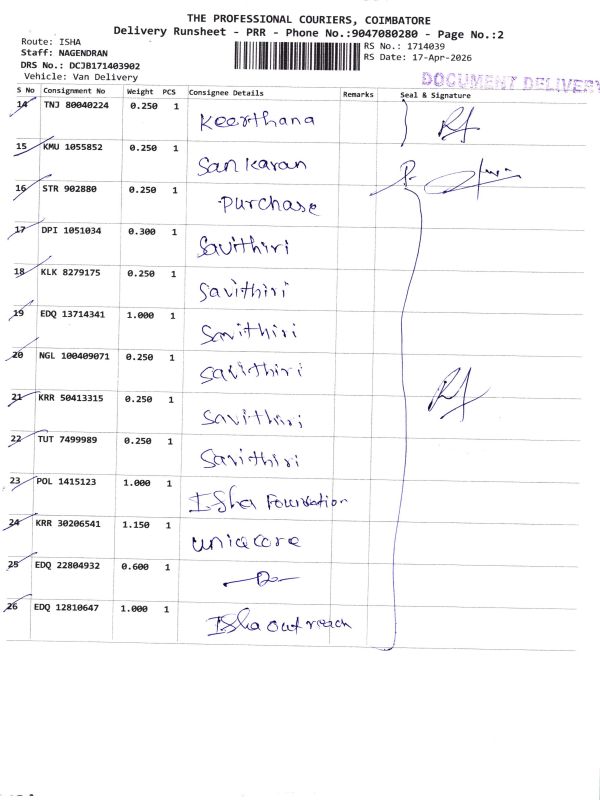 THE PROFESSIONAL COURIERS, COIMBATORE
Delivery Runsheet - PRR - Phone No.:9047080280 - Page No.:2
Route: ISHA
Staff: NAGENDRAN
DRS No.: DCJB171403902
Vehicle: Van Delivery
RS No.: 1714039
RS Date: 17-Apr-2026
DOCUMENT DELIVERY
S No Consignment No Weight PCS Consignee Details Remarks Seal & Signature
14 TNJ 80040224 0.250 1 Keerthana
15 KMU 1055852 0.250 1 Sankaran
16 STR 902880 0.250 1 Purchase
17 DPI 1051034 0.300 1 Savithiri
18 KLK 8279175 0.250 1 Savithiri
19 EDQ 13714341 1.000 1 Savithiri
20 NGL 100409071 0.250 1 Savithiri
21 KRR 50413315 0.250 1 Savithiri
22 TUT 7499989 0.250 1 Savithiri
23 POL 1415123 1.000 1 Isha Foundation
24 KRR 30206541 1.150 1 unicacore
25 EDQ 22804932 0.600 1 Do
26 EDQ 12810647 1.000 1 Isha outreach